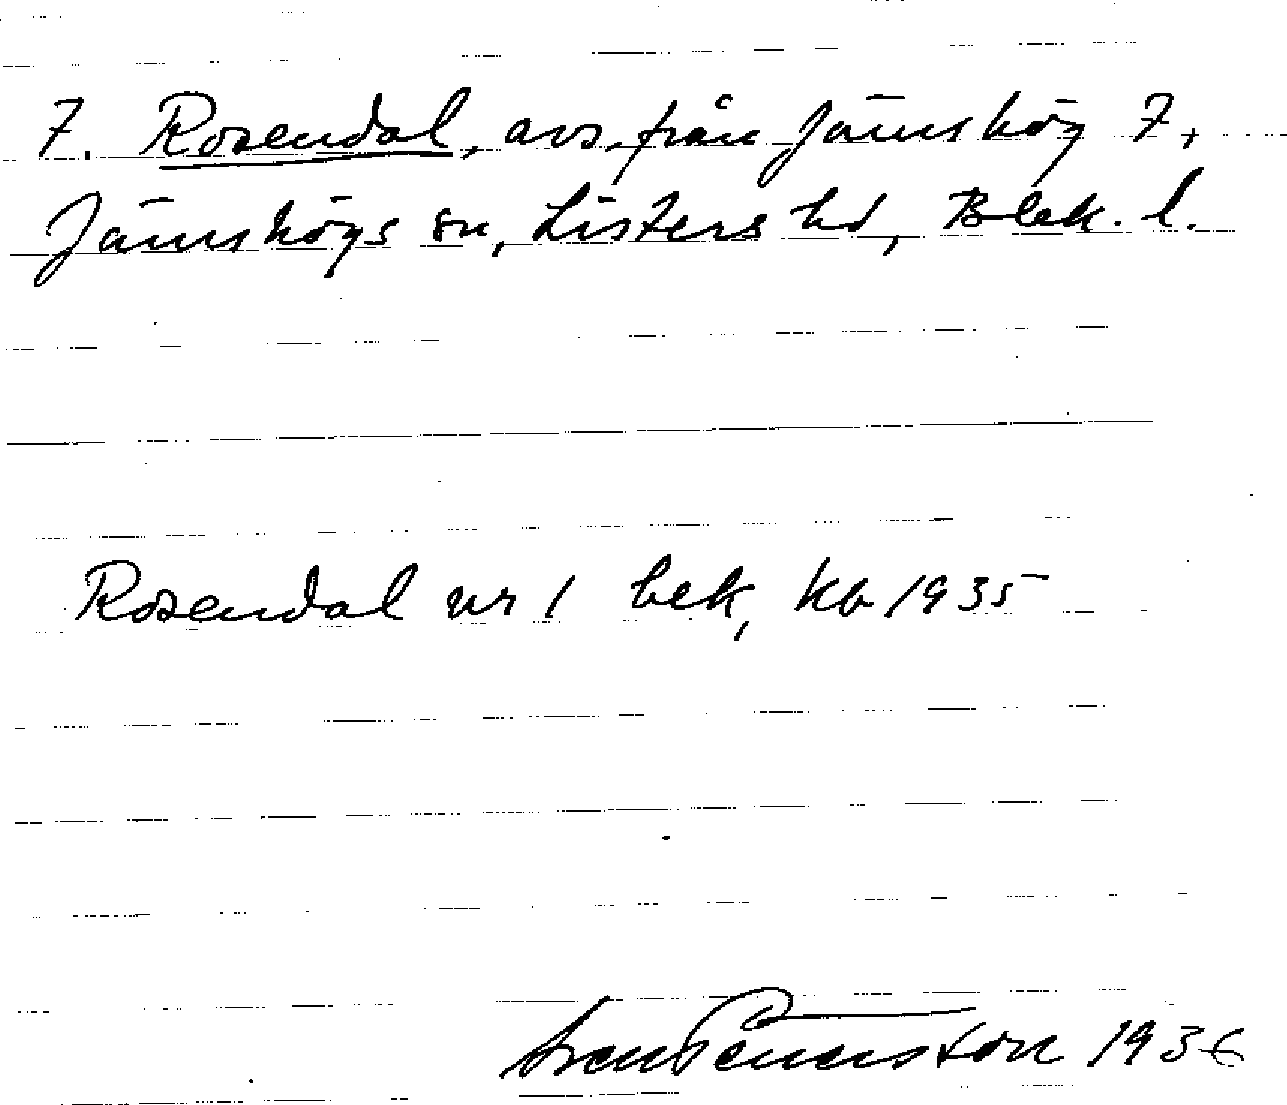 7. Rosendal, avs. från Jämshög 7,
Jämshögs sn, Listers hd, Blek. l.
Rosendal nr 1 bek, kb 1935
Sven Benson 1936